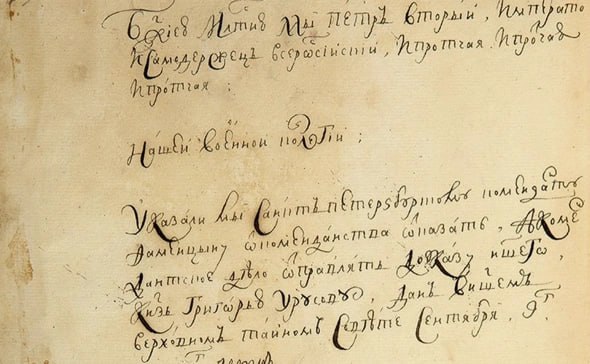 Бжіею Млтію Мы Пéтръ Вторый, Императо
И Самодержецъ всерѡсійскій, И протчая И прочая
И прóтчая :
Нáшей воéнной колéгіи ;
Указали мы Санктъ Пéтерзбургскому комендáнту
ѿкомендáнства ѿказáть, А коме
дантское дѣло ѿправлять до указу ншегѡ,
Кнзь Григорью Урусову, Данъ в нашемъ
верхóвномъ тайномъ Совѣте Сентября, 9г